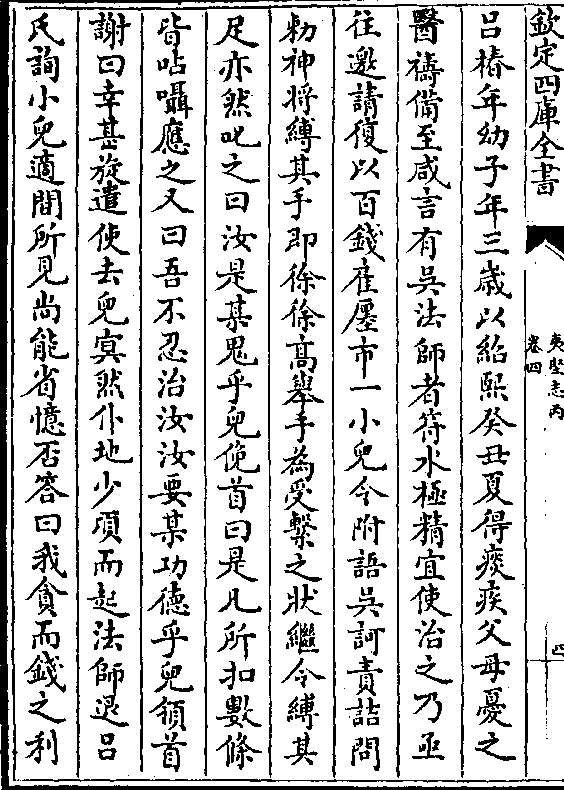 欽定四庫全書
夷堅志丙
卷四
四
吕椿年幼子年三歳以紹熙癸丑夏得痰疾父母憂之
醫禱備至咸言有吳法師者符水極精宜使治之乃亟
往邀請復以百錢雇廛市一小兒令附語吳訶責詰問
勅神将縛其手即徐徐髙舉手為受繫之狀繼令縛其
足亦然叱之曰汝是某鬼乎兒俛首曰是凡所扣數條
皆呫囁應之又曰吾不忍治汝汝要某功德乎兒頷首
謝曰幸甚旋遣使去兒寞然仆地少頃而起法師退吕
氏詢小兒適間所見尚能省憶否答曰我貪而錢之利